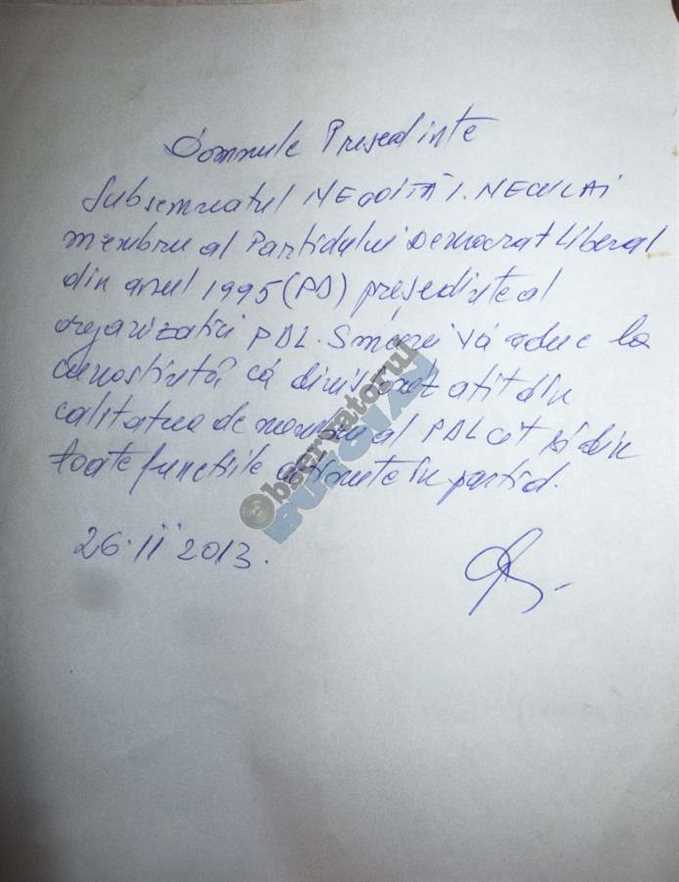 Domnule Președinte
Subsemnatul NEGOIȚĂ I. NECULAI
membru al Partidului Democrat Liberal
din anul 1995 (PD) președinte al
organizatiei PDL. Smeeni Vă aduc la
cunostință că demisionez atit din
calitatea de membru al PDL cit și din
toate functiile detinute în partid.
26.II 2013.
Observatorul
BUZOIAN